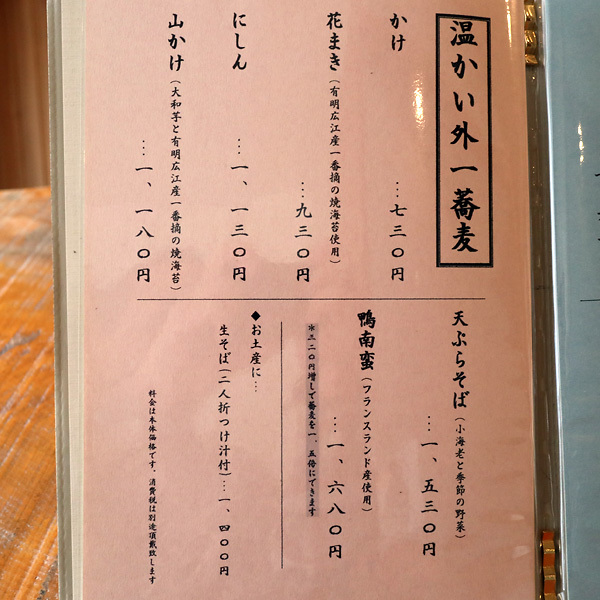 温かい外一蕎麦
かけ
‥‥七三〇円
花まき（有明広江産一番摘の焼海苔使用）
‥‥九三〇円
にしん
‥‥一、一三〇円
山かけ（大和芋と有明広江産一番摘の焼海苔）
‥‥一、一八〇円
天ぷらそば（小海老と季節の野菜）
‥‥一、五三〇円
鴨南蛮（フランスランド産使用）
‥‥一、六八〇円
＊三二〇円増しで蕎麦を一、五倍にできます
◆お土産に…
生そば（二人折つけ汁付）‥‥一、四〇〇円
料金は本体価格です。消費税は別途頂戴致します